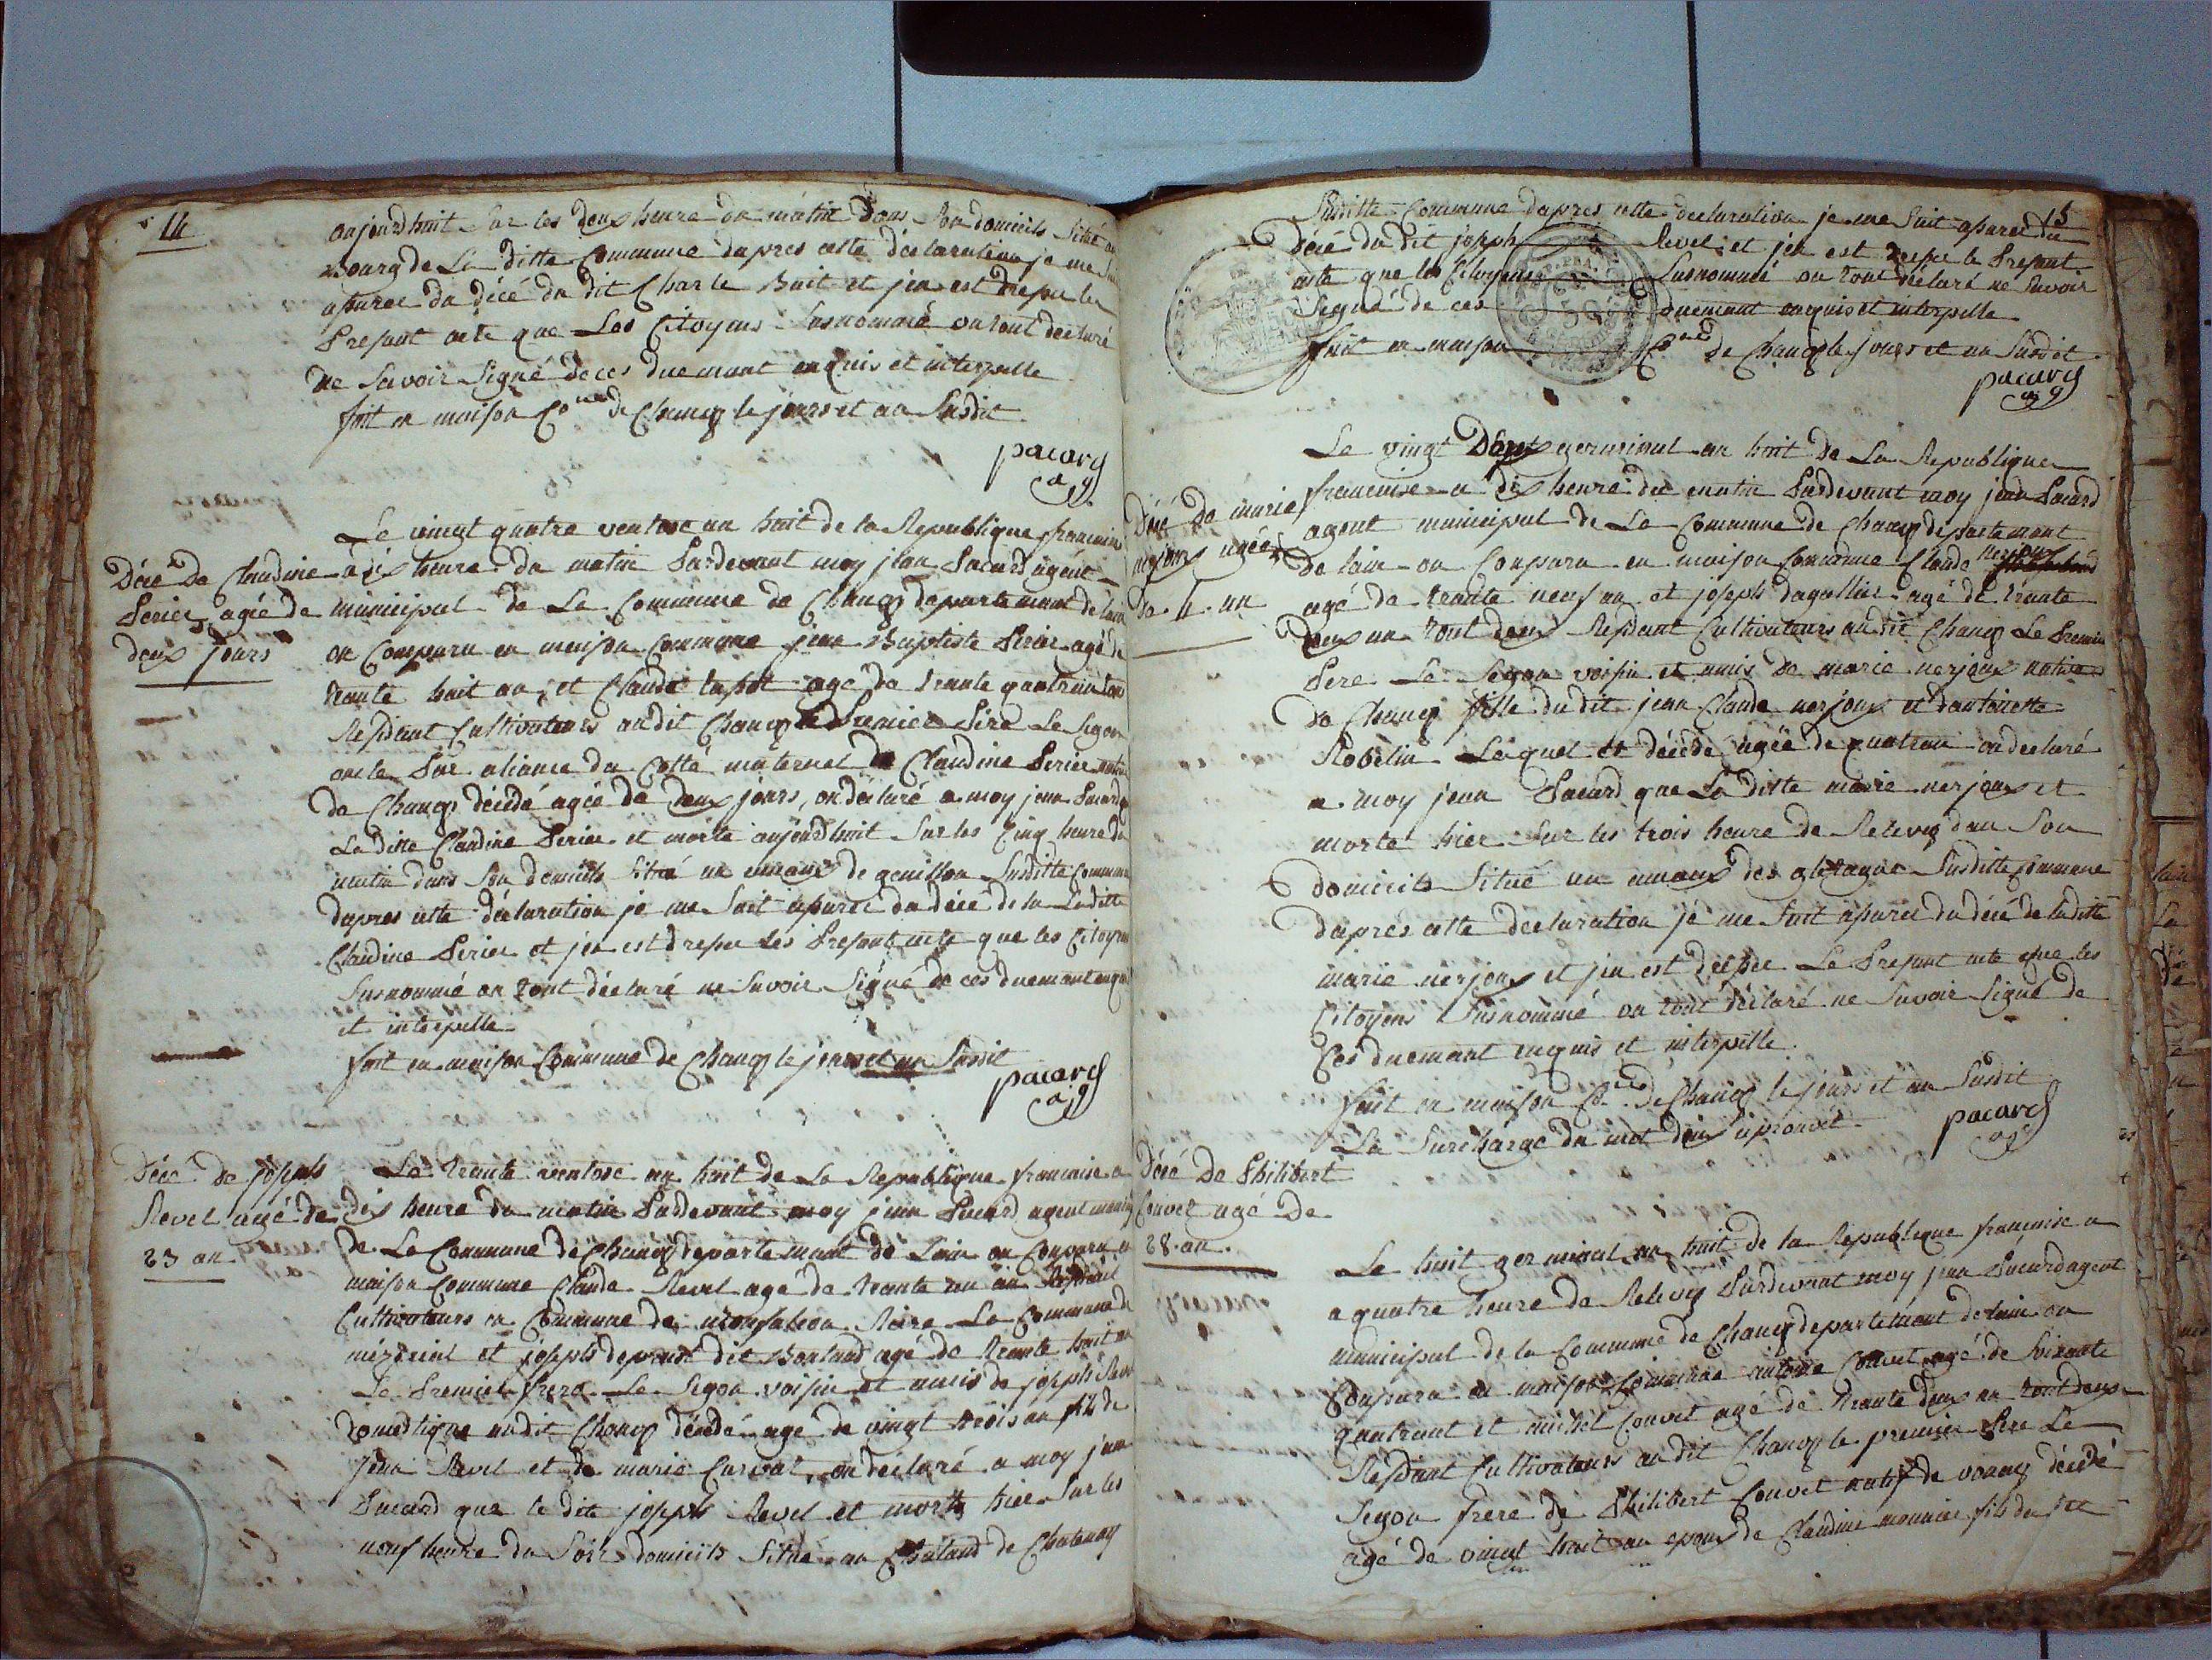 14
aujourdhuit sur les deux heure du matin dans son domicile situé au
Bourg de La ditte Commune dapres cette déclaration je me suit
apurer du décé du dit Charle Buit et jen est drepsé le
Presant acte que Les Citoyens susnommé on tout declaré
ne Savoir Signé de ces duemant enquis et interpellé
fait en maison Co^ne de Chaney le jours et an Susdit
pacard
ag
Décé de Claudine
Perier agée de
deux jours
Le vingt quatre ventose an huit de la Republique francaise
a dix heure du matin Pardevant moy jean Pacard agent
municipal de La Commune de Chaney departemant de Lain
on Comparu en maison Commune jean Baptiste Perier agé de
trante huit an, et Claude tapot agé de trante quatre an tous
Residant Cultivateurs audit Chaney le Premier Pere Le Segon
oncle Par aliance du Cotté maternel de Claudine Perier native
de Chaney décédé agée de deux jours, on déclaré a moy jean Pacard que
La ditte Claudine Perier et morte aujourdhuit Sur les Cinq heure du
matin dans Son domicile Situé au amaux de genillon Susditte Commune
dapres cette déclaration je me Suit apurer du décé de la Laditte
Claudine Perier et jen est drepsé les Presant acte que les Citoyens
Susnommé on tout déclaré ne Savoir Signé de ces duemant enquis
et interpellé
fait en maison Commune de Chaney le jours et an Susdit
pacard
ag
Décé de joseph
Revel agé de
23 an
Le trante ventose an huit de La Republique francaise a
dix heure du matin Pardevant moy jean Pacard agent municipal
de La Commune de Chaney departemant de Lain on Comparu en
maison Commune Claude Revel agé de trante un an Residant
Cultivateurs en Commune de La Commune de
mézeriat et joseph dit agé de trante huit an
Le Premier frere Le Segon voisin et amis de joseph Revel
domestique audit Chaney décédé agé de vingt trois an fils de
jean Revel et de marie on declaré a moy jean
Pacard que le dit joseph Revel et morts hier Sur les
neuf heure du Soir domicile Situé au de Chatenay
15
Susditte Commune dapres cette declaration je me Suit apurer du
décé du dit joseph Revel et jen est drepsé le Presant
acte que les Citoyens Susnommé on tout déclaré ne Savoir
Signé de ces duemant enquis et interpellé
fait en maison Co^ne de Chaney le jours et an Susdit
pacard
ag
Décé de marie
nerjoux agée
de 4 an
Le vingt Deux germinal an huit de La Republique
francaise a dix heure du matin Pardevant moy jean Pacard
agent municipal de La Commune de Chaney departemant
de lain on Comparu en maison Commune Claude nerjoux
agé de trante neuf an et joseph dagallier agé de trante
deux an tout deux Residant Cultivateurs audit Chaney Le Premier
Pere Le Segon voisin et amis de marie nerjoux native
de Chaney fille dudit jean Claude nerjoux et dantoinette
Robelin Lequel et décédé agée de quatre an declaré
a moy jean Pacard que La ditte marie nerjoux et
morte hier Sur les trois heure de Relevez dan Son
domicile Situé au amaux des Susditte Commune
dapres cette declaration je me Suit apurer du décé de laditte
marie nerjoux et jen est drepsé Le Presant acte que les
Citoyens Susnommé on tout déclaré ne Savoir Signé de
Ces duemant enquis et interpellé
fait en maison Co^ne de Chaney le jours et an Susdit
La Surcharge du mot deux aprouvé
pacard
ag
Décé de Philibert
Couvet agé de
28 an.
Le huit germinal an huit de la Republique francaise a
a quatre heure de Relevez Pardevant moy jean Pacard agent
municipal de la Commune de Chaney departemant de lain on
Comparu en maison Commune antoine Couvet agé de Soixante
quatre an et michel Couvet agé de trante deux an tout deux
Residant Cultivateurs audit Chaney le premier Pere Le
Segon frere de Philibert Couvet natif de vonnas décédé
agé de vingt huit an epoux de Claudine monnier fils dudit